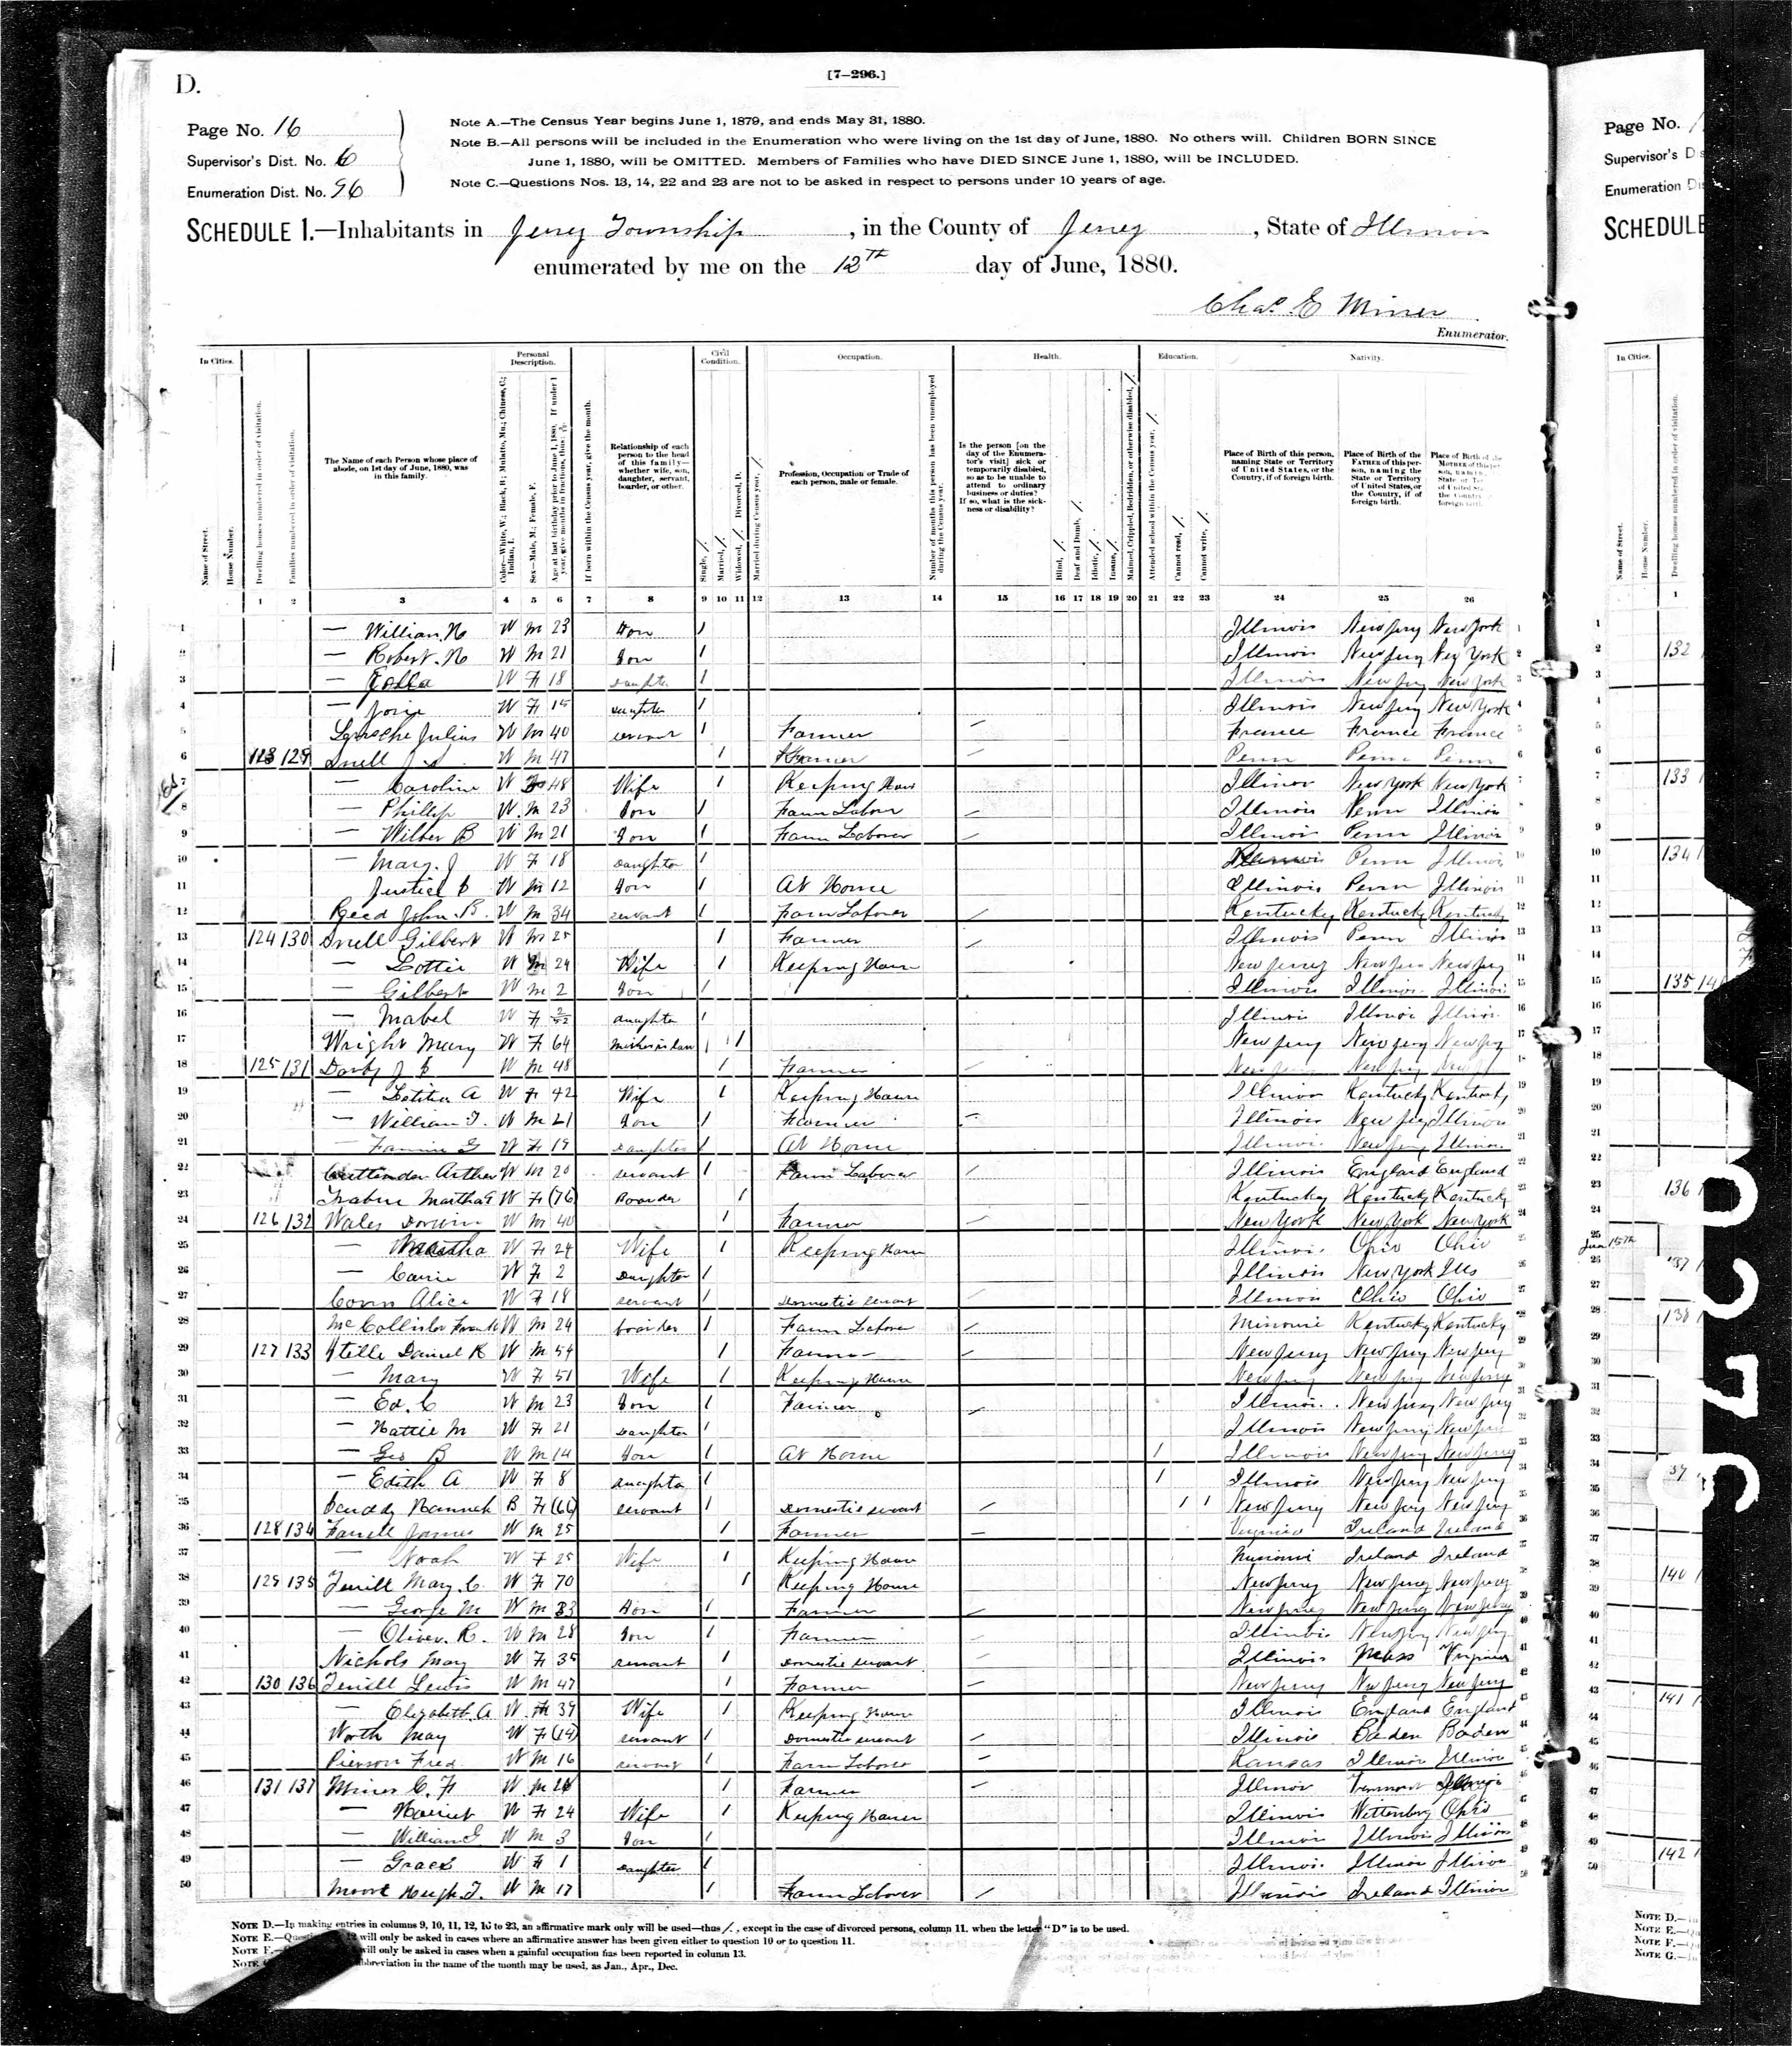 D.
[7-296.]
Page No. 16
Supervisor's Dist. No. 6
Enumeration Dist. No. 96
Note A.—The Census Year begins June 1, 1879, and ends May 31, 1880.
Note B.—All persons will be included in the Enumeration who were living on the 1st day of June, 1880. No others will. Children BORN SINCE
June 1, 1880, will be OMITTED. Members of Families who have DIED SINCE June 1, 1880, will be INCLUDED.
Note C.—Questions Nos. 13, 14, 22 and 23 are not to be asked in respect to persons under 10 years of age.
SCHEDULE 1.—Inhabitants in Jersey Township, in the County of Jersey, State of Illinois
enumerated by me on the 12th day of June, 1880.
Chas. E Miner
Enumerator.
In Cities. Personal Description. Civil Condition. Occupation. Health. Education. Nativity.
Name of Street.
House Number.
Dwelling houses numbered in order of visitation.
Families numbered in order of visitation.
The Name of each Person whose place of abode, on 1st day of June, 1880, was in this family.
Color—White, W.; Black, B.; Mulatto, Mu.; Chinese, C.; Indian, I.
Sex—Male, M.; Female, F.
Age at last birthday prior to June 1, 1880. If under 1 year, give months in fractions, thus:
If born within the Census year, give the month.
Relationship of each person to the head of this family—whether wife, son, daughter, servant, boarder, or other.
Single, /.
Married, /.
Widowed, /. Divorced, D.
Married during Census year, /.
Profession, Occupation or Trade of each person, male or female.
Number of months this person has been unemployed during the Census year.
Is the person [on the day of the Enumerator's visit] sick or temporarily disabled, so as to be unable to attend to ordinary business or duties? If so, what is the sickness or disability?
Blind, /.
Deaf and Dumb, /.
Idiotic, /.
Insane, /.
Maimed, Crippled, Bedridden, or otherwise disabled, /.
Attended school within the Census year, /.
Cannot read, /.
Cannot write, /.
Place of Birth of this person, naming State or Territory of United States, or the Country, if of foreign birth.
Place of Birth of the FATHER of this person, naming the State or Territory of United States, or the Country, if of foreign birth.
1 2 3 4 5 6 7 8 9 10 11 12 13 14 15 16 17 18 19 20 21 22 23 24 25 26
1 — William N W M 23 Son / Illinois New Jersey New York
2 — Robert N W M 21 Son / Illinois New Jersey New York
3 — W F 18 Daughter / Illinois New Jersey New York
4 — W F 15 Daughter / Illinois New Jersey New York
5 Julius W M 40 servant / Farmer France France France
6 123 129 Snell W M 47 / Farmer Penn Penn Penn
7 — Caroline W F 48 Wife / Keeping House Illinois New York New York
8 — Phillip W M 23 Son / Farm Labor Illinois Penn Illinois
9 — Wilber B W M 21 Son / Farm Laborer Illinois Penn Illinois
10 — Mary J W F 18 Daughter / Illinois Penn Illinois
11 Justice W M 12 Son / At Home Illinois Penn Illinois
12 Reed John B. W M 34 servant / Farm Laborer Kentucky Kentucky Kentucky
13 124 130 Snell Gilbert W M 25 / Farmer Illinois Penn Illinois
14 — Lottie W 24 Wife / Keeping House New Jersey New Jersey New Jersey
15 — Gilbert W M 2 Son / Illinois Illinois Illinois
16 — Mabel W F daughter / Illinois Illinois Illinois
17 Wright Mary W F 64 Mother in law / New Jersey New Jersey New Jersey
18 125 131 Darby J W M 48 / Farmer New Jersey New Jersey New Jersey
19 — Letitia A W F 42 Wife / Keeping House Illinois Kentucky Kentucky
20 — William W M 21 Son / Farmer Illinois New Jersey Illinois
21 — Fannie G W F 19 Daughter / At Home Illinois New Jersey Illinois
22 Arthur W M 20 servant / Farm Laborer Illinois England England
23 Martha W F (76) Boarder / Kentucky Kentucky Kentucky
24 126 132 Wales W M 40 / Farmer New York New York New York
25 — Martha W F 24 Wife / Keeping House Illinois Ohio Ohio
26 — Carrie W F 2 Daughter / Illinois New York Ills
27 Alice W F 18 servant / Domestic servant Illinois Ohio Ohio
28 McCollister Frank W M 24 boarder / Farm Laborer Missouri Kentucky Kentucky
29 127 133 Stelle Daniel R W M 54 / Farmer New Jersey New Jersey New Jersey
30 — Mary W F 51 Wife / Keeping House New Jersey New Jersey New Jersey
31 — Ed. C W M 23 Son / Farmer Illinois New Jersey New Jersey
32 — Hattie M W F 21 Daughter / Illinois New Jersey New Jersey
33 — Geo B W M 14 Son / At Home / Illinois New Jersey New Jersey
34 — Edith A W F 8 daughter / / Illinois New Jersey New Jersey
35 Hannah B F (66) servant / Domestic servant / / New Jersey New Jersey New Jersey
36 128 134 Farrell James W M 25 / Farmer Virginia Ireland Ireland
37 — Norah W F 25 Wife / Keeping House Missouri Ireland Ireland
38 129 135 Terrill Mary C. W F 70 / Keeping House New Jersey New Jersey New Jersey
39 — George M W M 33 Son / Farmer New Jersey New Jersey New Jersey
40 — Oliver R. W M 28 Son / Farmer Illinois New Jersey New Jersey
41 Nichols May W F 35 servant / Domestic servant Illinois Mass Virginia
42 130 136 Terrill Lewis W M 47 / Farmer New Jersey New Jersey New Jersey
43 — Elizabeth A W F 39 Wife / Keeping House Illinois England England
44 Worth May W F (14) servant / Domestic servant Illinois Baden Baden
45 Pierson Fred W M 16 / Farm Laborer Kansas Illinois Illinois
46 131 137 Miner C. F W M 26 / Farmer Illinois Vermont Illinois
47 — Harriet W F 24 Wife / Keeping House Illinois Wittenberg Ohio
48 — William G W M 3 Son / Illinois Illinois Illinois
49 — Grace W F 1 Daughter / Illinois Illinois Illinois
50 Moore Hugh T. W M 17 / Farm Laborer Illinois Ireland Illinois
NOTE D.—In making entries in columns 9, 10, 11, 12, 16 to 23, an affirmative mark only will be used—thus /., except in the case of divorced persons, column 11, when the letter "D" is to be used.
NOTE E.—Question 12 will only be asked in cases where an affirmative answer has been given either to question 10 or to question 11.
NOTE F.— will only be asked in cases when a gainful occupation has been reported in column 13.
NOTE abbreviation in the name of the month may be used, as Jan., Apr., Dec.
Page No.
Supervisor's
Enumeration
SCHEDUL
In Cities.
Name of Street.
House Number.
Dwelling houses numbered in order of visitation.
1
132
133
134
135 14
136
June 15th
137
138
140
141
142
NOTE D.—
NOTE E.—
NOTE F.—
NOTE G.—